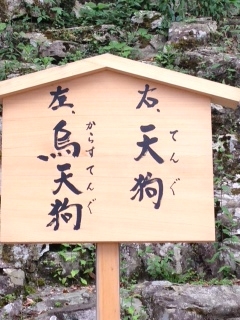 右、天狗
てんぐ
左、烏天狗
からすてんぐ